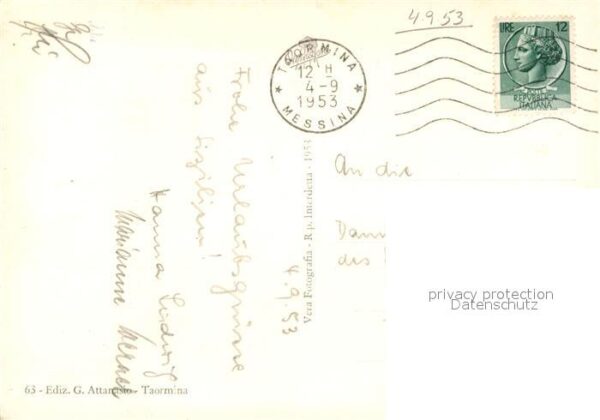 4.9.53
LIRE 12
POSTE
REPVBBLICA
ITALIANA
TAORMINA
12 H
4-9
1953
MESSINA
Frohe Urlaubsgrüsse
aus Sizilien!
Hanna Ludwig
Marianne
4.9.53
Vera Fotografia - Rip. Interdetta - 1953
An die
des
privacy protection
Datenschutz
63 - Ediz. G. Attanasio - Taormina